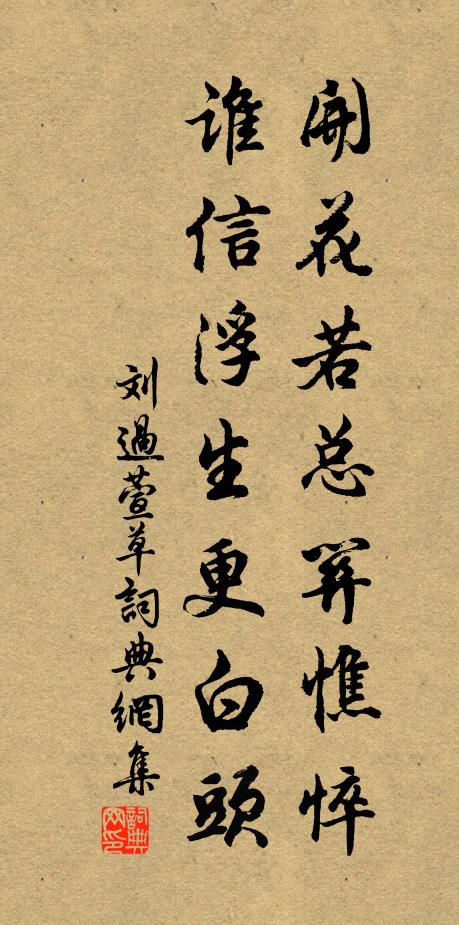 開花若总関憔悴
誰信浮生更白頭
刘過萱草詞典網集
詞典網印